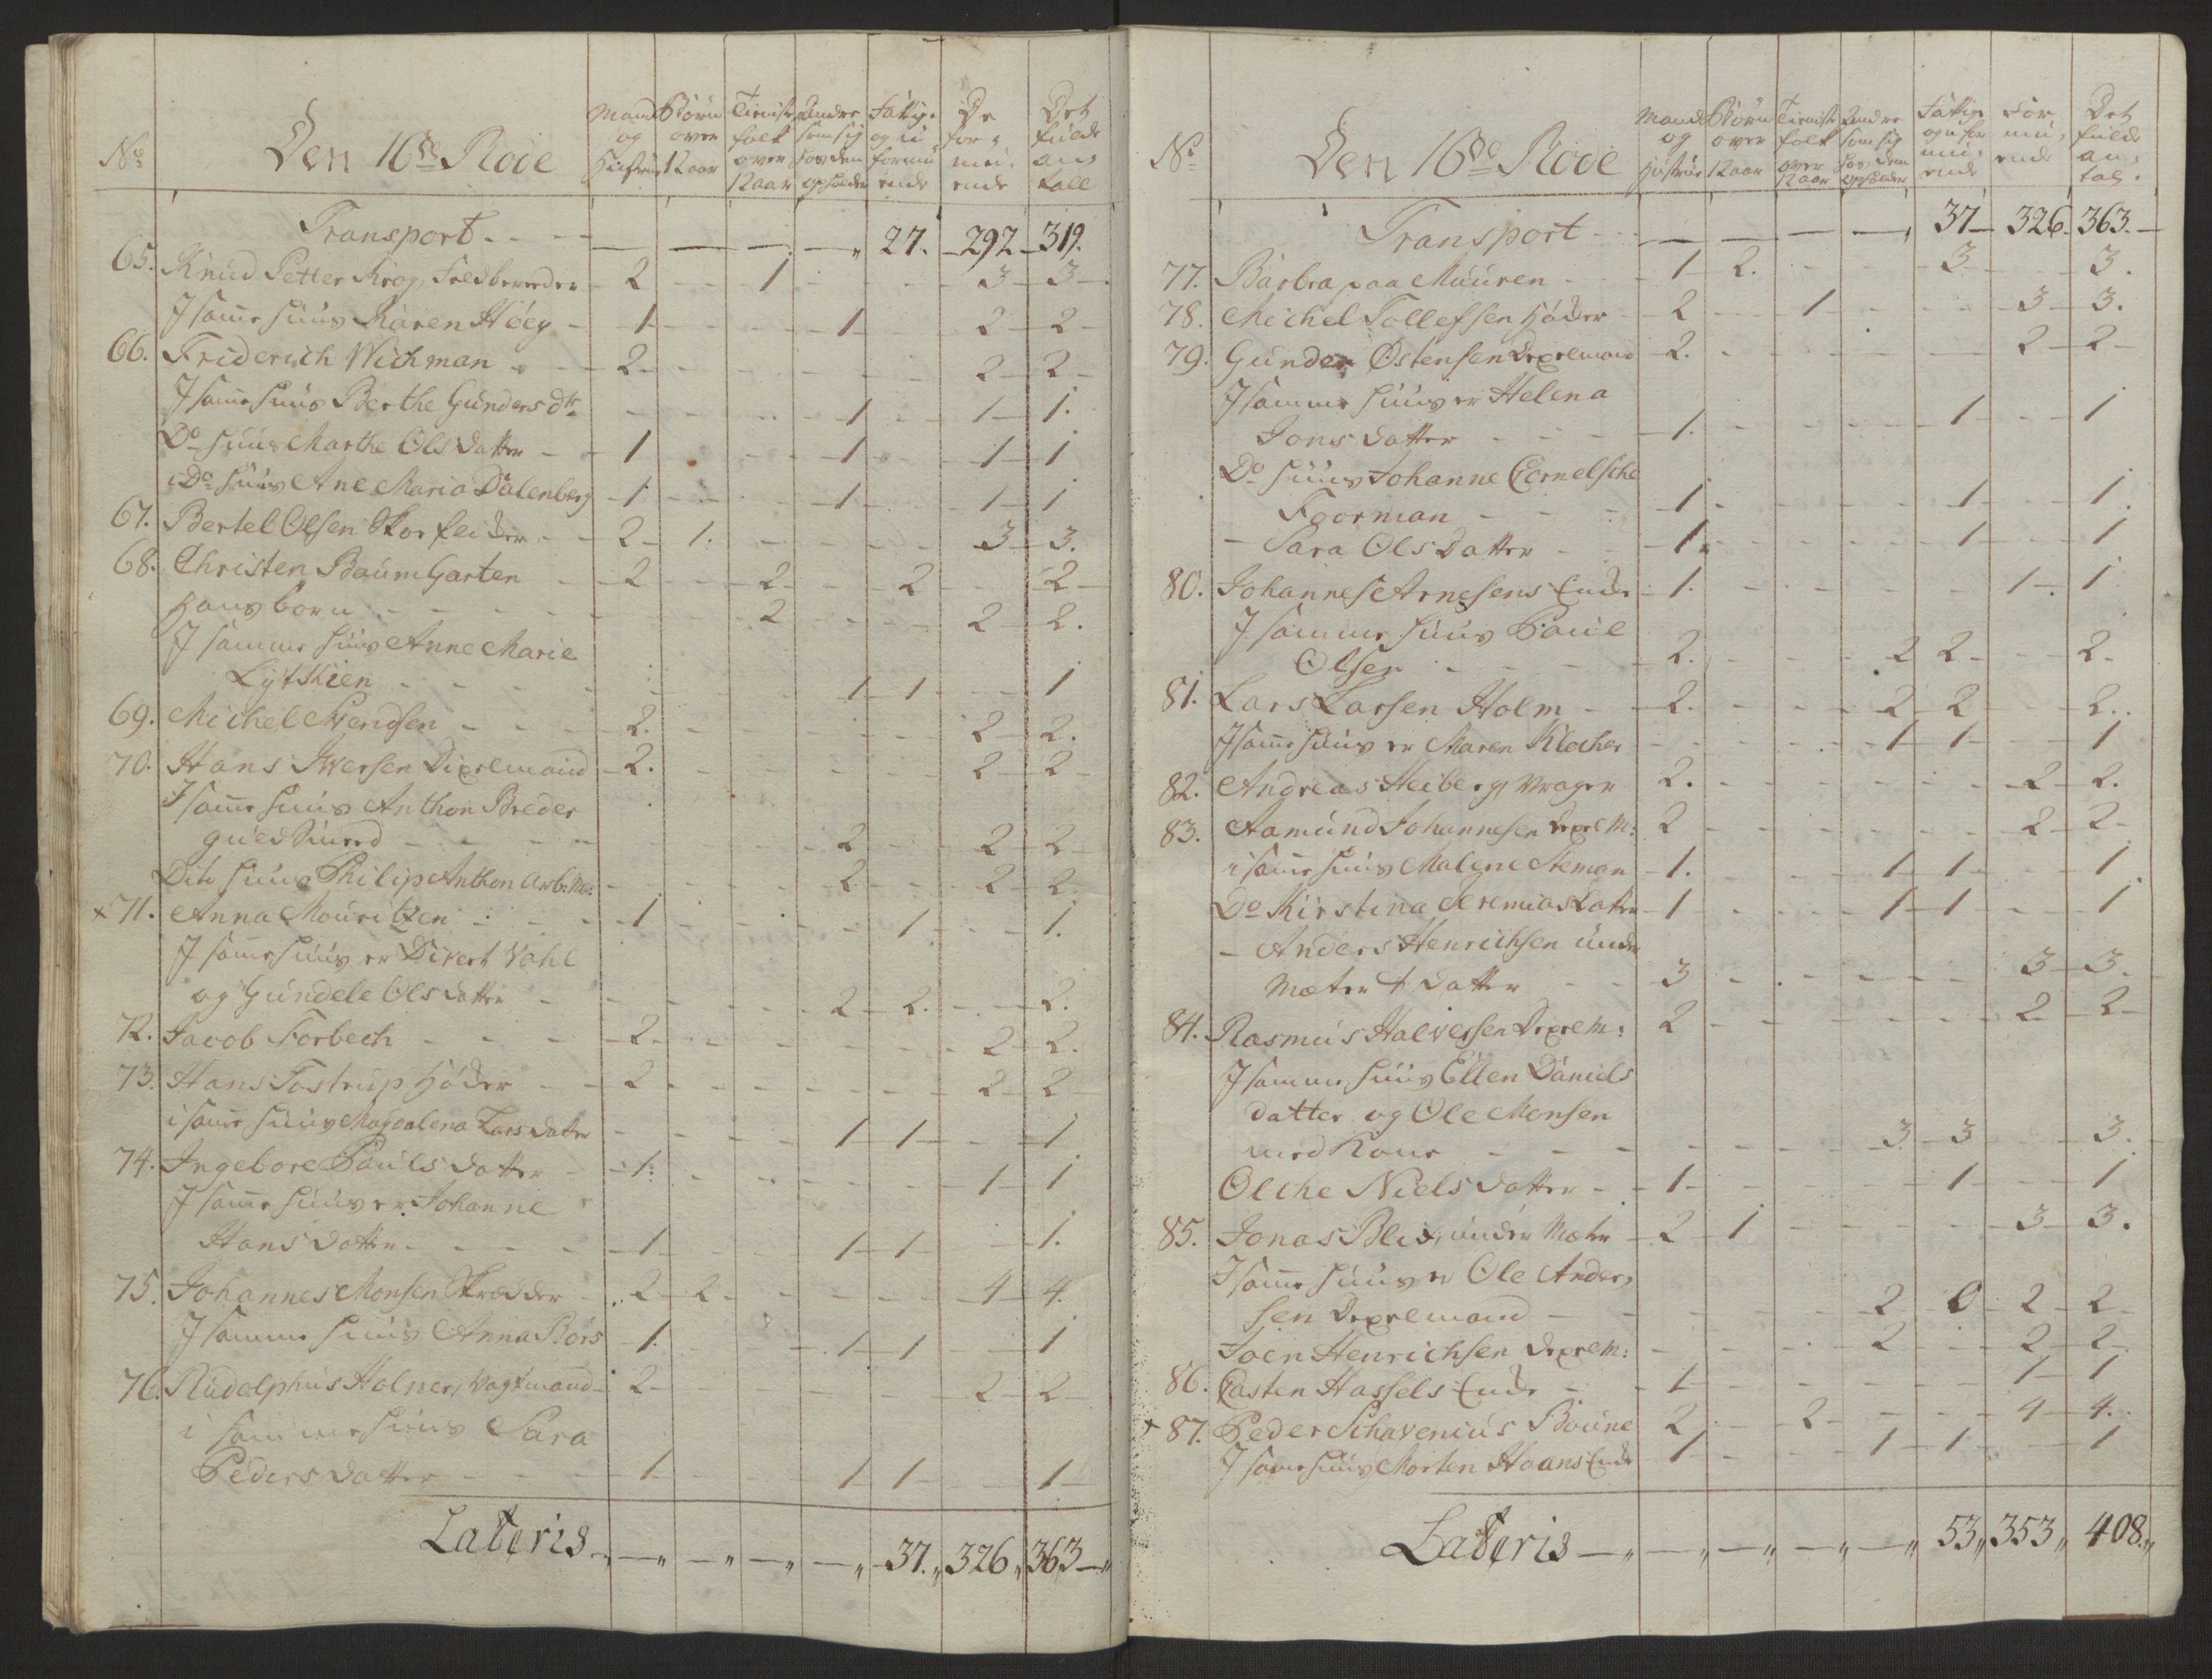 No
Den 16de Rode
Mand og Hustrue
Børn over 12 aar
Tieniste folk over 12 aar
Andre som sig hos dem opholder
Fattige og uformuende
De formuende
Det fulde antall
Transport - - - - 27. 292 319.
65. Knud Petter Krog, 2 - 1 - - 3 3
J samme huus Karen Høeg 1 - - 1 - 2 2
66. Friderich Wichman 2 - - - - 2 2
J samme huus Berthe Gunders dtr - - - 1 - 1 1.
Do huus Marthe Ols datter 1 - - 1 - 1 1
i Do huus Ane Maria Dalenberg 1 - - 1 - 1 1
67. Bertel Olsen Skoeflicker 2 1. - - - 3 3.
68. Christen BaumGarten 2 - 2 - 2 - 2
hans børn - - 2 - - 2 2.
J samme huus Anne Marie
Lytkien - - - 1 1 - 1
69. Michel Svendsen 2. - - - - 2 2.
70. Hans Iversen Dixelmand 2. - - - - 2 2
J samme huus Anthon Breder
guldsmed - - - 2 - 2 2
Dito huus Philip Anthon Arb: M: - - - 2 - 2 2.
x 71. Anna Mouritzen 1 - - - 1 - 1.
J samme huus er Divert Vahl
og Gundele Olsdatter - - - 2 2. - 2.
72. Jacob Forbech 2 - - - - 2 2.
73. Hans Tostrup Høker 2 - - - - 2 2
i samme huus Magdalena Larsdatter - - - 1 1 - 1
74. Ingebore Pauls datter 1. - - - - 1 1
J samme huus er Johanne
Hans datter 1 - - 1 1 - 1.
75. Johannes Monsen Skrædder 2 2 - - - 4 4.
J samme huus Anna Børs 1. - - 1 1 - 1
76. Rudolphus Holner, Vagtmand 2 - - - - 2 2
i samme huus Sara
Peders datter 1 - - 1 1 - 1
Lateris - - - - 37. 326 363
No
Den 16de Rode
Mand og Hustrue
Børn over 12 aar
Tieniste folk over 12 aar
Andre som sig hos dem opholder
Fattige og u formuende
Formuende
Det fulde antal.
Transport - - - - 37 326 363.
77. Barbra paa Muuren 1 2. - - 3 - 3.
78. Michel Tollefsen Høker 2 - 1 - - 3 3.
79. Gunder Østensen Dixelmand 2. - - - - 2 2
J samme huus er Helena
Jons datter 1. - - - 1 - 1
Do huus Johanne Cornelsche
Foorman 1 - - - 1 - 1.
- Sara Ols datter 1 - - - 1 - 1
80. Johannes Arnesens Enke 1. - - - - 1. 1
J samme huus Poul
Olsen 2. - - 2 2 - 2
81. Lars Larsen Holm 2. - - 2 2 - 2.
J samme huus er Maren Klocher - - - 1 1 - 1
82. Andreas Heiberg, Vrager 2. - - - - 2 2.
83. Aamund Johannesen Dexel M: 2 - - - - 2 2
i samme huus Malene Steman 1. - - 1 1 - 1.
Do Kirstina Jeremias datter 1 - - 1 1 - 1
- Anders Henrichsen under
Mæter & datter 3 - - - - 3 3.
84. Rasmus Halversen Dexel M: 2 - - - - 2 2
J samme huus Ellen Daniels
datter og Ole Monsen
med Kone - - - 3 3 - 3.
Olche Niels datter 1 - - - 1 - 1
85. Jonas Blix, under Mæter 2 1 - - - 3 3.
J samme huus er Ole Ander,
sen Dexelmand - - - 2 0 2 2
Joen Henrichsen Dexel M: - - - 2 - 2 2
86. Casten Hassels Enke 1 - - - - 1 1
x 87. Peder Schavenius Boune 2 - 2 - - 4 4.
J samme huus Morten Haans Enke 1 - - 1 1 - 1
Lateris - - - - 53 353 408.